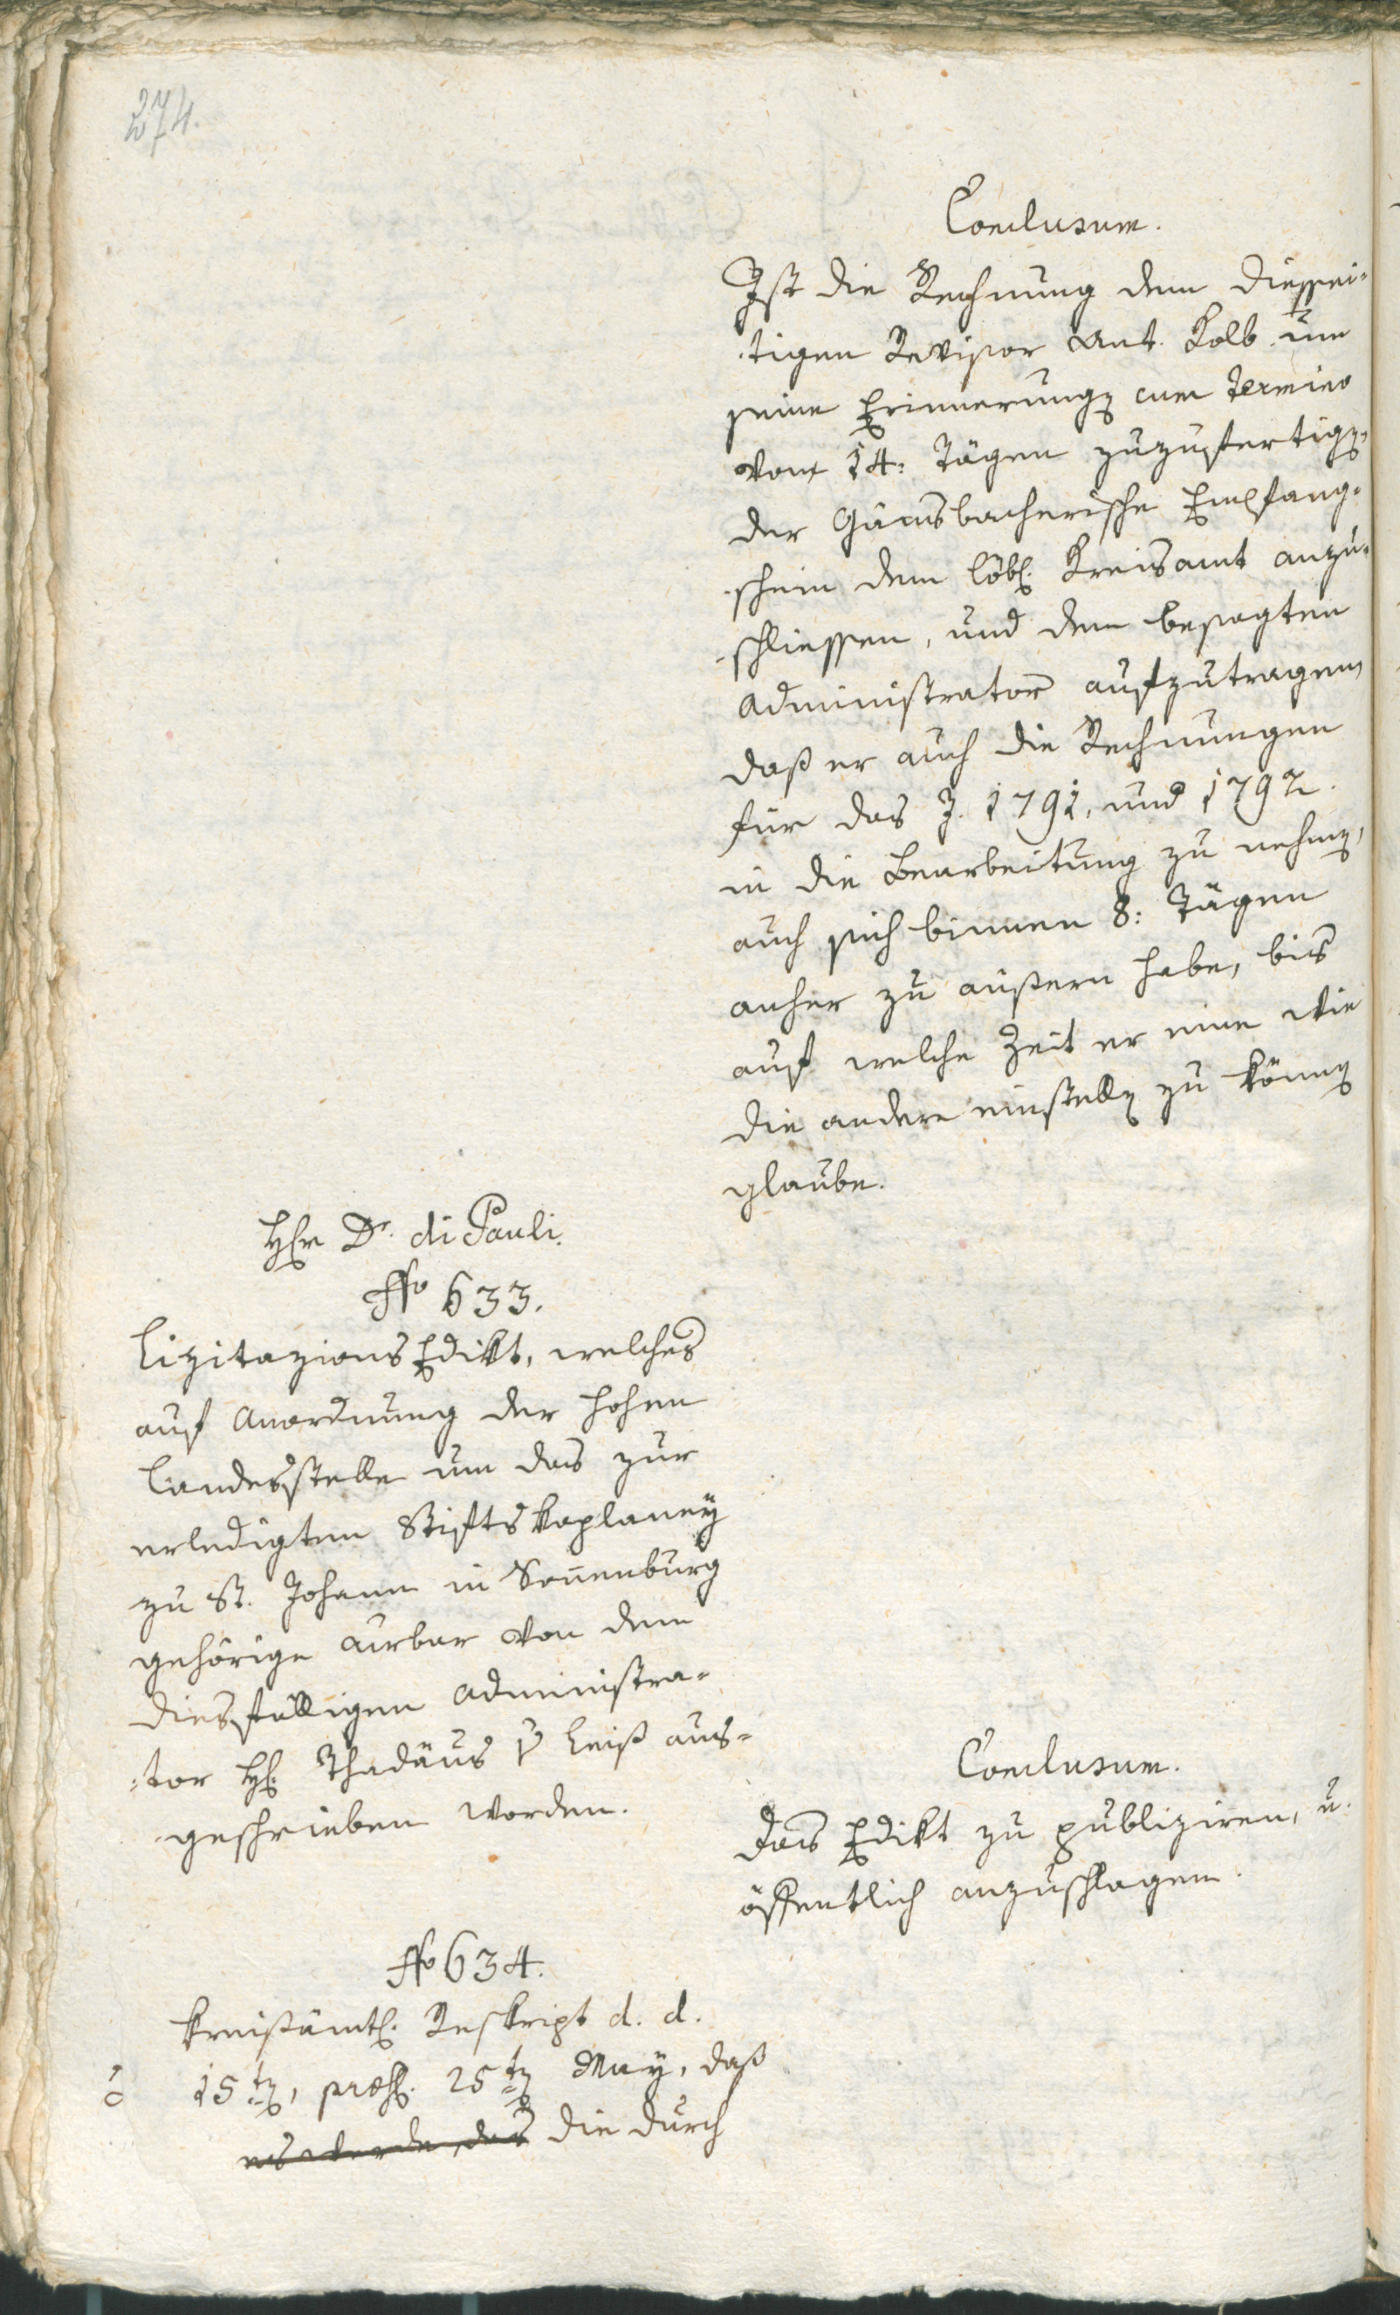 274.
Conclusum.
Ist die Rechnung dem diessei-
tigen Revisor Ant. Kolb um
seine Erinnerung cum Termino
von 14: Tägen zuzufertig,
der Gämsbacherische Empfang-
schein dem löbl. Kreisamt anzu-
schliessen, und dem besagten
Administrator aufzutragen,
daß er auch die Rechnungen
für das J. 1791, und 1792.
in die Bearbeitung zu nehmen,
auch sich binnen 8: Tägen
anher zu äußern habe, bis
auf welche Zeit er eine wie
die andere einstellen zu können
glaube.
Hr Dr. di Pauli.
No 633.
Lizitazions Edikt, welches
auf Anordnung der hohen
Landesstelle um das zur
erledigten Stiftskaplaney
zu St. Johann in Sonnenburg
gehörige Urbar von dem
diesfälligen Administra-
tor H. Thadäus v Leiß aus-
geschrieben worden.
Conclusum.
Das Edikt zu publiziren, u.
öffentlich anzuschlagen.
No 634.
Kreißämtl. Reskript d. d.
15ten, præs. 25ten May, daß
es werde, das die durch